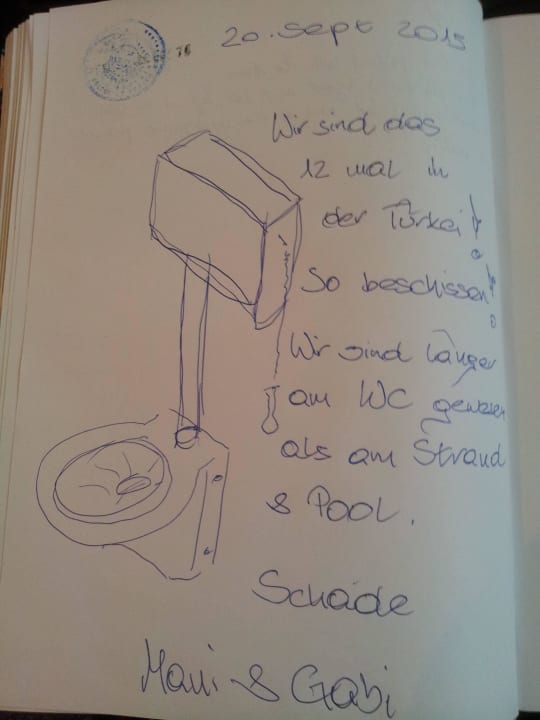 20. Sept 2015
Wir sind das
12 mal in
der Türkei!
So beschissen!
Wir sind länger
am WC gewesen
als am Strand
& Pool.
Schade
& Gabi